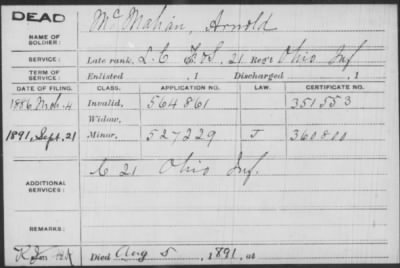 DEAD
NAME OF SOLDIER: McMahan, Arnold
SERVICE: Late rank, L.C. F&S, 21 Reg't Ohio Inf
TERM OF SERVICE: Enlisted , 1 Discharged , 1
DATE OF FILING. CLASS. APPLICATION NO. LAW. CERTIFICATE NO.
1886 Mch. 4 Invalid, 564861 351553
Widow,
1891, Sept. 21 Minor, 527229 J 360800
ADDITIONAL SERVICES: C 21 Ohio Inf.
REMARKS:
Died Aug 5, 1891, at